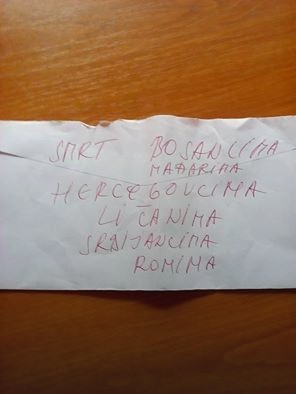 SMRT BOSANCIMA
MAĐARIMA
HERCEGOVCIMA
LIČANIMA
SRBIJANCIMA
ROMIMA